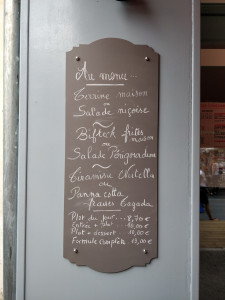 Au menu...
Terrine maison
ou
Salade niçoise
~
Bifteck frites
maison
ou
Salade Périgourdine
~
Tiramisu
ou
Panna cotta
fraises Tagada
Plat du jour... 8,70 €
Entrée + Plat 11,00 €
Plat + dessert 11,00 €
Formule complète 13,00 €